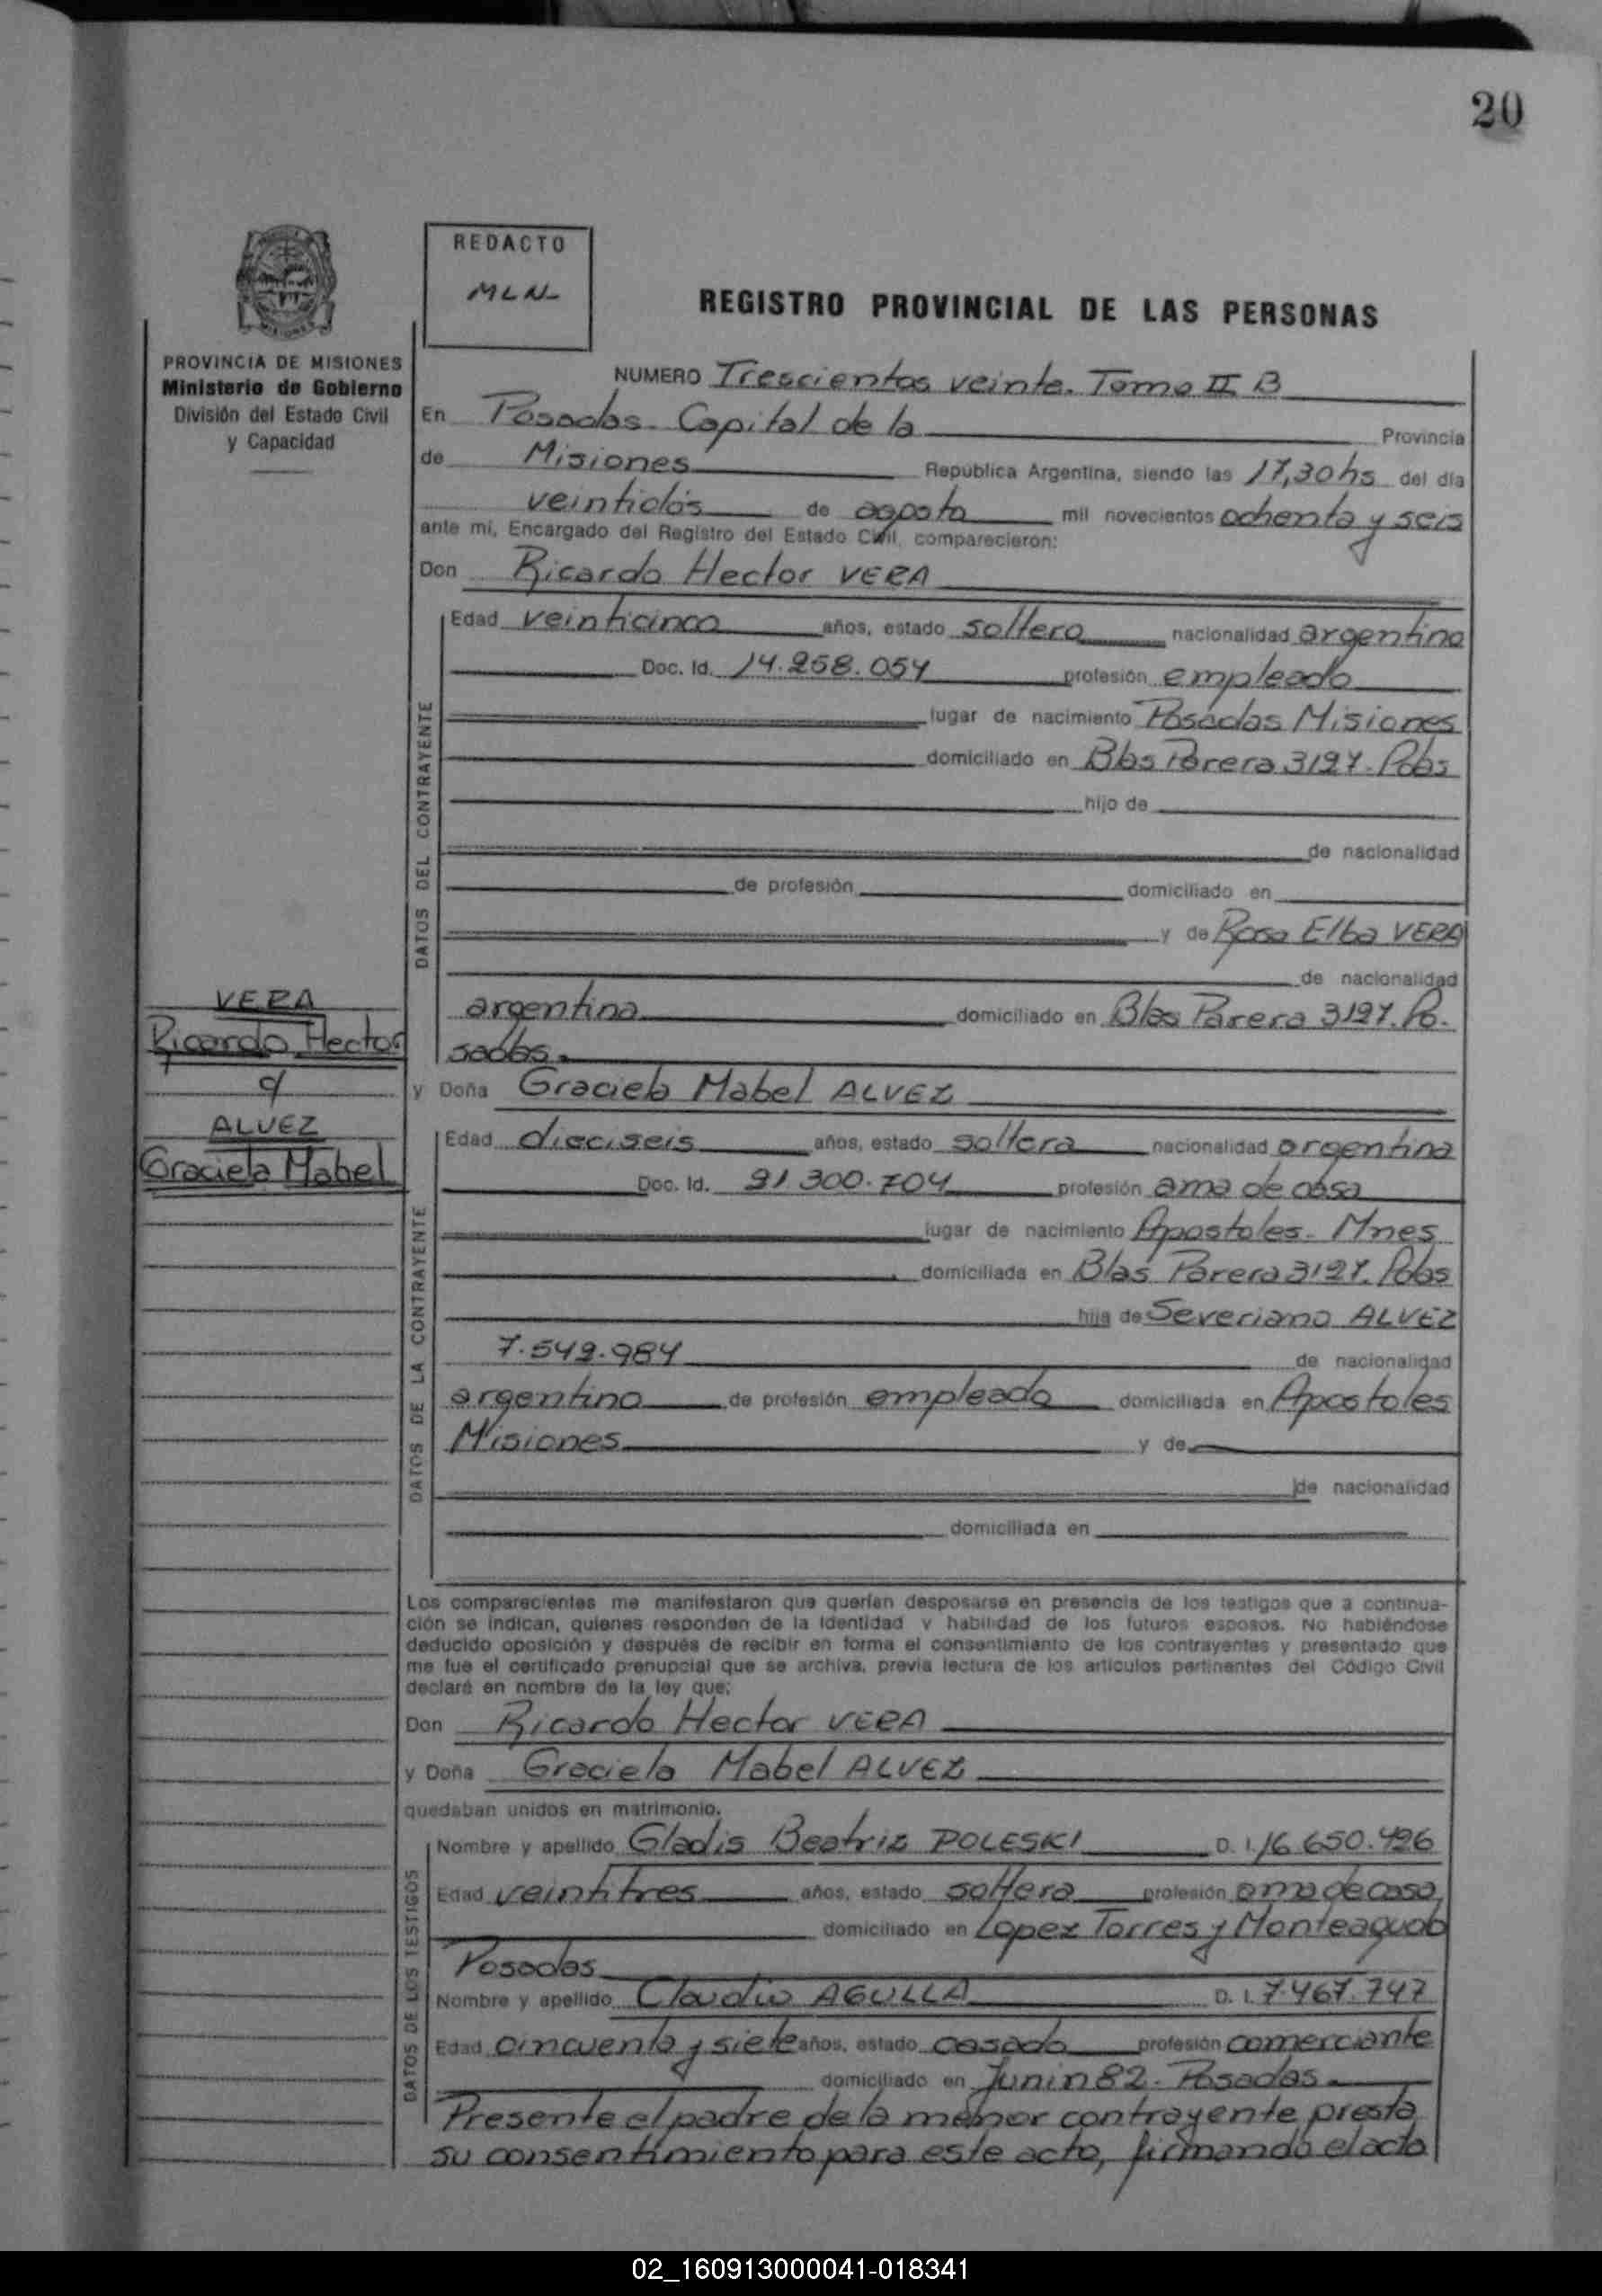 20
REDACTO
MLN-
REGISTRO PROVINCIAL DE LAS PERSONAS
PROVINCIA DE MISIONES
Ministerio de Gobierno
División del Estado Civil
y Capacidad
NUMERO Trescientos veinte. Tomo II B
En Posadas. Capital de la Provincia
de Misiones República Argentina, siendo las 17,30 hs del día
veintidós de agosto mil novecientos ochenta y seis
ante mí, Encargado del Registro del Estado Civil, comparecieron:
Don Ricardo Hector VERA
DATOS DEL CONTRAYENTE
Edad veinticinco años, estado soltero nacionalidad argentino
Doc. Id. 14.258.054 profesión empleado
lugar de nacimiento Posadas Misiones
domiciliado en Blas Parera 3127. Pdas
hijo de
de nacionalidad
de profesión domiciliado en
y de Rosa Elba VERA
de nacionalidad
argentina domiciliado en Blas Parera 3127. Po-
sadas.
VERA
Ricardo Hector
c/
ALVEZ
Graciela Mabel
y Doña Graciela Mabel ALVEZ
DATOS DE LA CONTRAYENTE
Edad dieciseis años, estado soltera nacionalidad argentina
Doc. Id. 91.300.704 profesión ama de casa
lugar de nacimiento Apostoles. Mnes
domiciliada en Blas Parera 3127. Pdas
hija de Severiano ALVEZ
7.549.984 de nacionalidad
argentino de profesión empleado domiciliada en Apostoles
Misiones y de
de nacionalidad
domiciliada en
Los comparecientes me manifestaron que querían desposarse en presencia de los testigos que a continua-
ción se indican, quienes responden de la identidad y habilidad de los futuros esposos. No habiéndose
deducido oposición y después de recibir en forma el consentimiento de los contrayentes y presentado que
me fue el certificado prenupcial que se archiva, previa lectura de los artículos pertinentes del Código Civil
declaré en nombre de la ley que:
Don Ricardo Hector VERA
y Doña Graciela Mabel ALVEZ
quedaban unidos en matrimonio.
DATOS DE LOS TESTIGOS
Nombre y apellido Gladis Beatriz POLESKI D. I. 16.650.426
Edad veintitres años, estado soltera profesión ama de casa
domiciliado en Lopez Torres y Monteagudo
Posadas
Nombre y apellido Claudio AGULLA D. I. 7.467.747
Edad cincuenta y siete años, estado casado profesión comerciante
domiciliado en Junin 82. Posadas.
Presente el padre de la menor contrayente presta
su consentimiento para este acto, firmando el acta
02_160913000041-018341